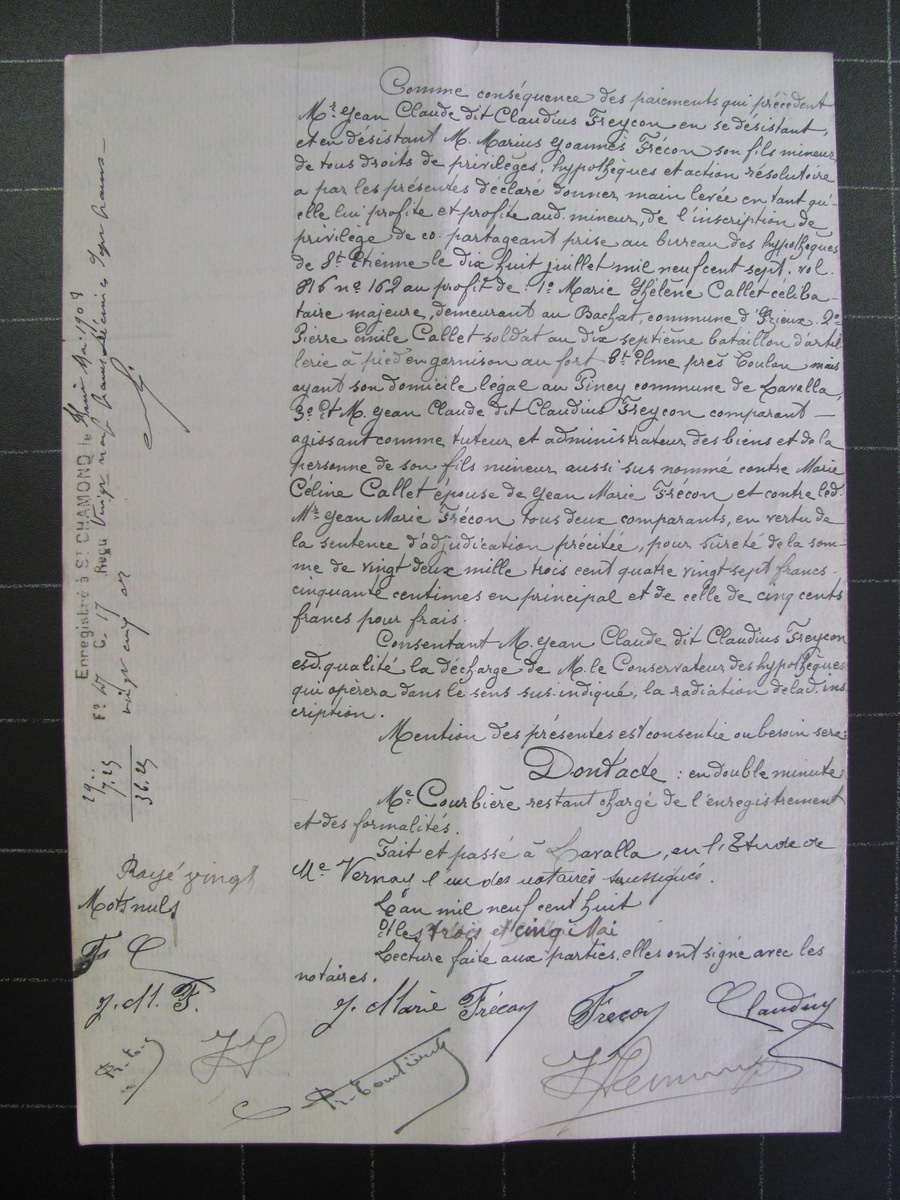 Comme conséquence des paiements qui précèdent
Mr. Jean Claude dit Claudius Freycon en se désistant,
et en désistant M. Marius Joannès Frécon son fils mineur
de tous droits de privilèges, hypothèques et action résolutoire
a par les présentes déclaré donner main levée en tant qu'
elle lui profite et profite aud. mineur, de l'inscription de
privilège de co. partageant prise au bureau des hypothèques
de St. Etienne le dix huit juillet mil neuf cent sept. vol.
816 no 162 au profit de : 1o Marie Hélène Callet céliba-
taire majeure, demeurant au Bachat, commune d'Izieux. 2o
Pierre Emile Callet soldat au dix septième bataillon d'artil
lerie à pied en garnison au fort St. Elme près Toulon mais
ayant son domicile légal au Piney commune de Lavalla,
3o Et M. Jean Claude dit Claudius Freycon comparant —
agissant comme tuteur et administrateur des biens et de la
personne de son fils mineur aussi sus nommé contre Marie
Céline Callet épouse de Jean Marie Frécon et contre led.
Mr. Jean Marie Frécon tous deux comparants, en vertu de
la sentence d'adjudication précitée, pour sûreté de la som-
me de vingt deux mille trois cent quatre vingt sept francs -
cinquante centimes en principal et de celle de cinq cents
francs pour frais.
Consentant M. Jean Claude dit Claudius Freycon
esd. qualité la décharge de M. le Conservateur des hypothèques
qui opèrera dans le sens sus. indiqué, la radiation de lad. ins
cription.
Mention des présentes est consentie ou besoin sera.
Dont acte : en double minute
Me. Courbière restant chargé de l'enregistrement
et des formalités.
Fait et passé à Lavalla, en l'Etude de
Me. Vernay l'un des notaires soussignés.
L'an mil neuf cent huit
Les trois et cinq Mai
Lecture faite aux parties, elles ont signé avec les
notaires.
J. Marie Frécon Frécon
Enregistré à St CHAMOND, le Mai 1908
Fo 47 C. 17 Reçu vingt neuf francs
vingt cinq
29 "
7.25
36.25
Rayé vingt
Mots nuls
F C
J. M. F.